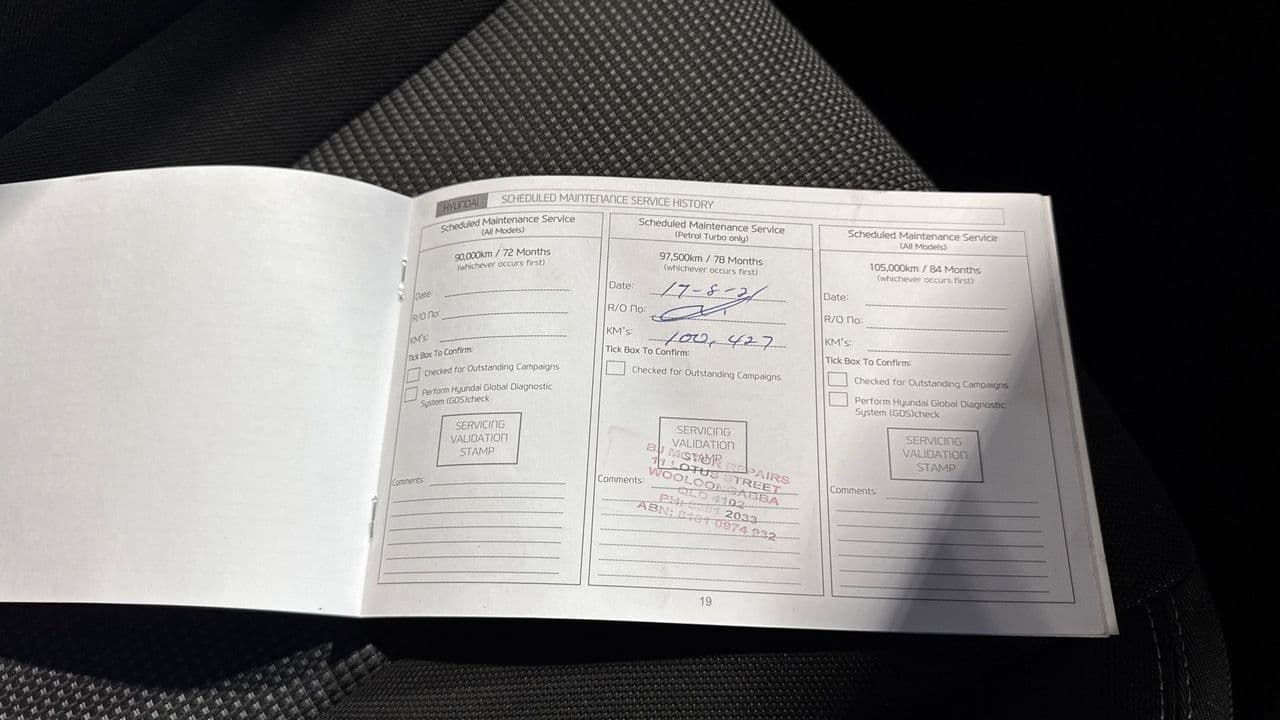 HYUNDAI SCHEDULED MAINTENANCE SERVICE HISTORY
Scheduled Maintenance Service
(All Models)
90,000km / 72 Months
(whichever occurs first)
Date:
R/O No:
KM's:
Tick Box To Confirm:
Checked for Outstanding Campaigns
Perform Hyundai Global Diagnostic
System (GDS)check
SERVICING
VALIDATION
STAMP
Comments:
Scheduled Maintenance Service
(Petrol Turbo only)
97,500km / 78 Months
(whichever occurs first)
Date: 17-8-21
R/O No:
KM's: 100,427
Tick Box To Confirm:
Checked for Outstanding Campaigns
SERVICING
VALIDATION
STAMP
BJ MOTOR REPAIRS
11 LOTUS STREET
WOOLOONGABBA
QLD 4102
PH: 2033
ABN: 0974 932
Comments:
Scheduled Maintenance Service
(All Models)
105,000km / 84 Months
(whichever occurs first)
Date:
R/O No:
KM's:
Tick Box To Confirm:
Checked for Outstanding Campaigns
Perform Hyundai Global Diagnostic
System (GDS)check
SERVICING
VALIDATION
STAMP
Comments:
19